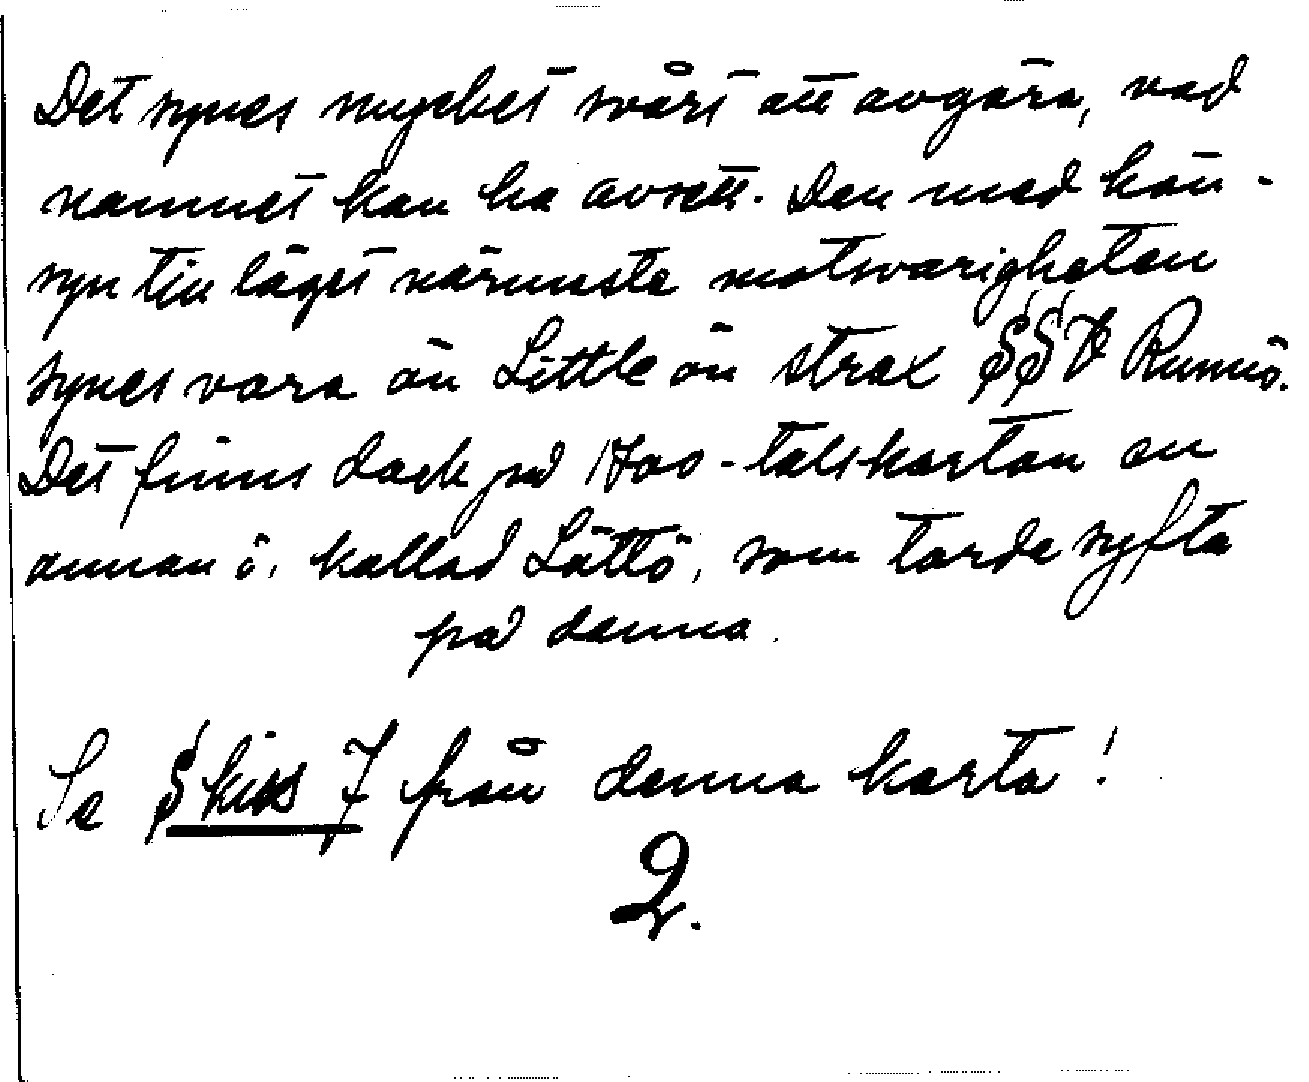 Det synes mycket svårt att avgöra, vad
namnet kan ha avsett. Den med hän-
syn till läget närmaste motsvarigheten
synes vara ön Little ön strax SSV Rumsö.
Det finns dock på 1700-talskartan en
annan ö, kallad Lättö, som torde syfta
på denna.
Se Skiss 7 från denna karta!
2.